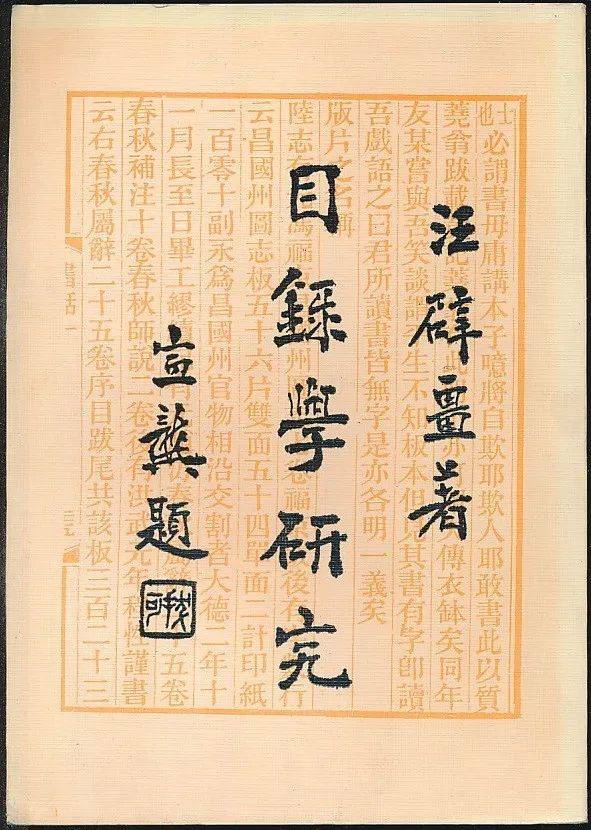 汪辟畺著
目錄學研究
宣龔題
拔可
士也必謂書毋庸講本子噫將自欺耶欺人耶敢書此以質
蕘翁跋載 傳衣缽矣同年
友某嘗與吾笑談 生不知板本但見其書有字卽讀
吾戲語之曰君所讀書皆無字是亦各明一義矣
版片之名稱
陸志 後有 行
云昌國州圖志板五十六片雙面五十四單面二計印紙
一百零十副永爲昌國州官物相沿交割者大德二年十
一月長至日畢工繆 十五卷
春秋補注十卷春秋師說二卷後有洪武元年 謹書
云右春秋屬辭二十五卷序目跋尾共該板三百二十三
書話一